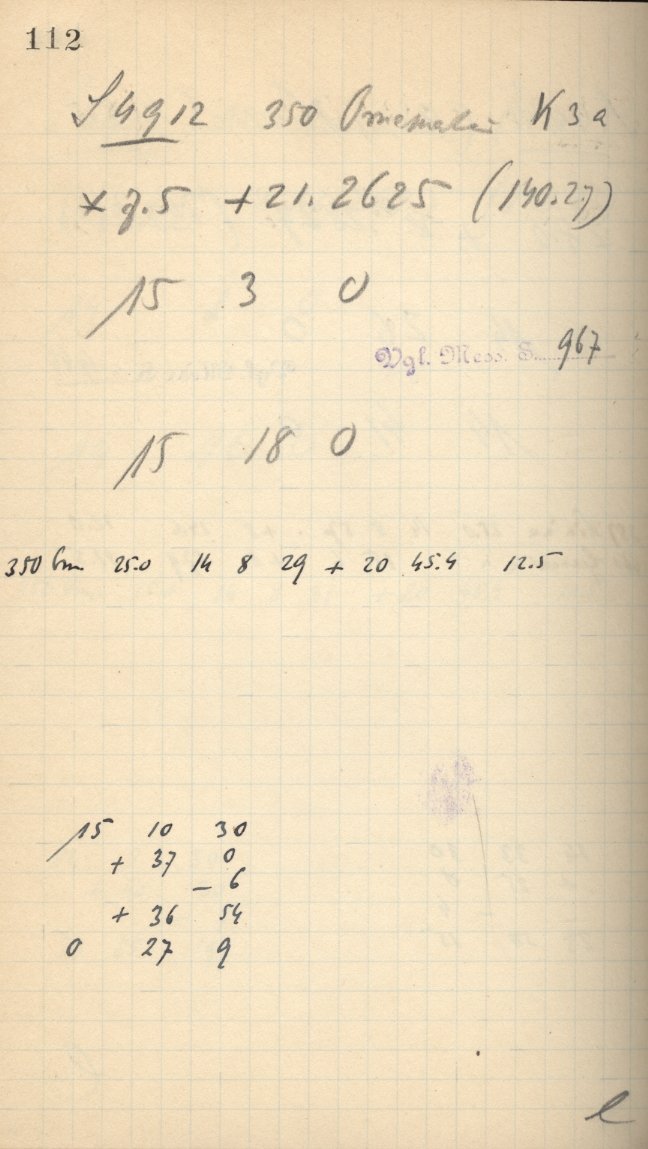 112
S 4912 350 Ornamenta K 3 a
* 7.5 + 21.2625 (140.27)
15 3 0
Vgl. Mess. S. 967
15 18 0
350 Orn 25.0 14 8 29 + 20 45.4 12.5
15 10 30
+ 37 0
- 6
+ 36 54
0 27 9
l